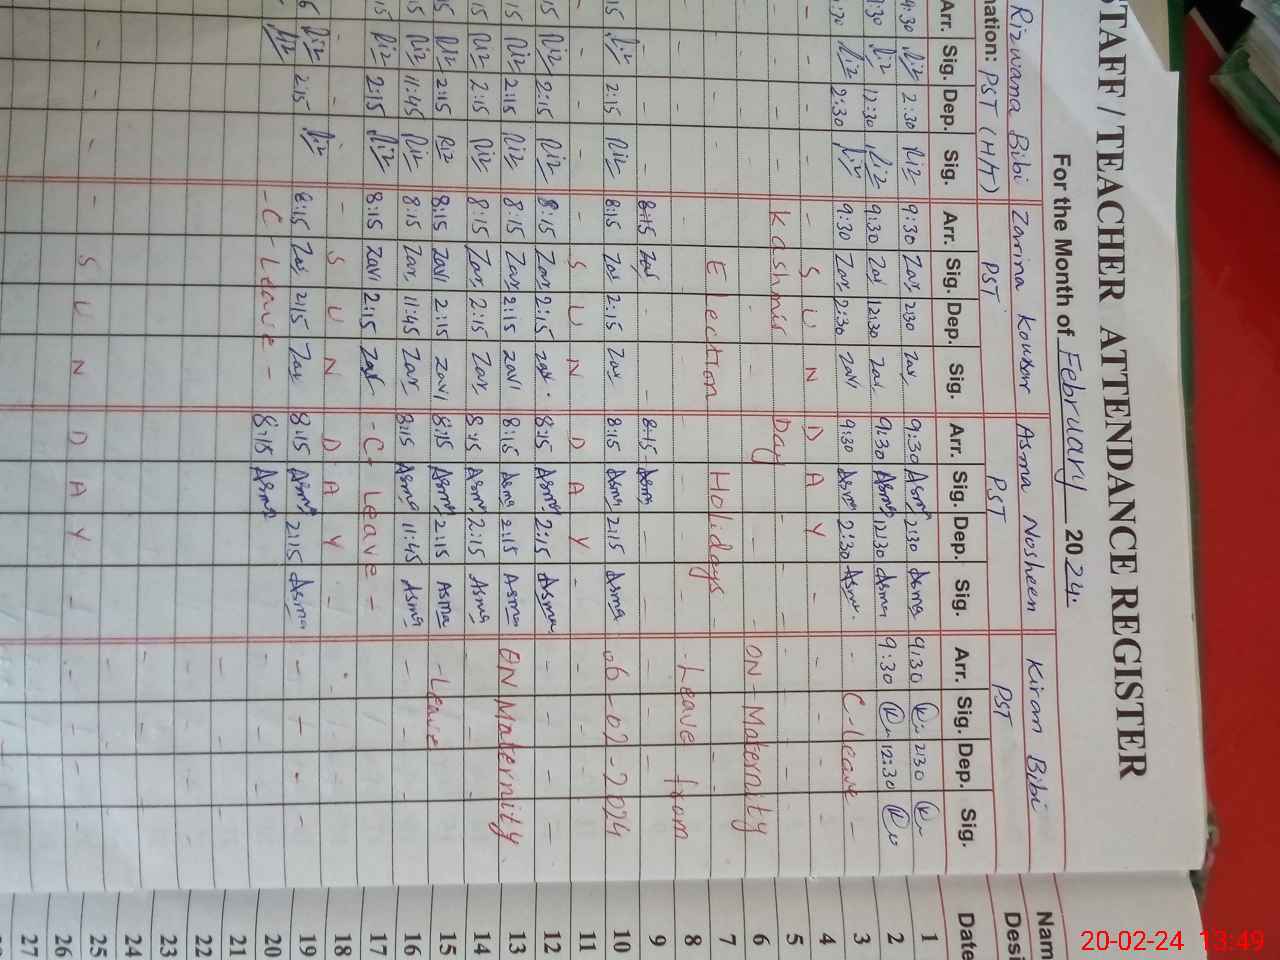 STAFF / TEACHER ATTENDANCE REGISTER
For the Month of February 2024.
Rizwana Bibi Zarina Kousar Asma Nosheen Kiran Bibi Nam
nation: PST (H/T) PST PST PST Desi
Arr. Sig. Dep. Sig. Arr. Sig. Dep. Sig. Arr. Sig. Dep. Sig. Arr. Sig. Dep. Sig. Date
Riz 2:30 Riz 9:30 Zar 2:30 Zar 9:30 Asma 2:30 Asma 9:30 2:30 1
Riz 12:30 Riz 9:30 Zar 12:30 Zar 9:30 Asma 12:30 Asma 9:30 12:30 2
Riz 2:30 Riz 9:30 Zar 2:30 Zar 9:30 Asma 2:30 Asma - C-leave - 3
- - - - S U N D A Y - - - - 4
Kashmir Day - - - 5
- - - - ON - Maternity 6
- - - Election Holidays - - 7
- - - - Leave from 8
- - - 8:15 Zar - - 8:15 Asma - - - - 9
15 Riz 2:15 Riz 8:15 Zar 2:15 Zar 8:15 Asma 2:15 Asma 06-02-2024 10
- - - - S U N D A Y - - - 11
15 Riz 2:15 Riz 8:15 Zar 2:15 Zar 8:15 Asma 2:15 Asma - - - - 12
15 Riz 2:15 Riz 8:15 Zar 2:15 Zar 8:15 Asma 2:15 Asma ON Maternity 13
15 Riz 2:15 Riz 8:15 Zar 2:15 Zar 8:15 Asma 2:15 Asma 14
15 Riz 2:15 Riz 8:15 Zar 2:15 Zar 8:15 Asma 2:15 Asma - Leave 15
15 Riz 11:45 Riz 8:15 Zar 11:45 Zar 8:15 Asma 11:45 Asma - - - - 16
15 Riz 2:15 Riz 8:15 Zar 2:15 Zar - C - Leave - 17
- - - - S U N D A Y - - - 18
Riz 2:15 Riz 8:15 Zar 2:15 Zar 8:15 Asma 2:15 Asma - - - - 19
Riz - C - Leave - 8:15 Asma - - - 20
21
22
23
24
- - - - S U N D A Y - - - 25
26
27
20-02-24 13:49